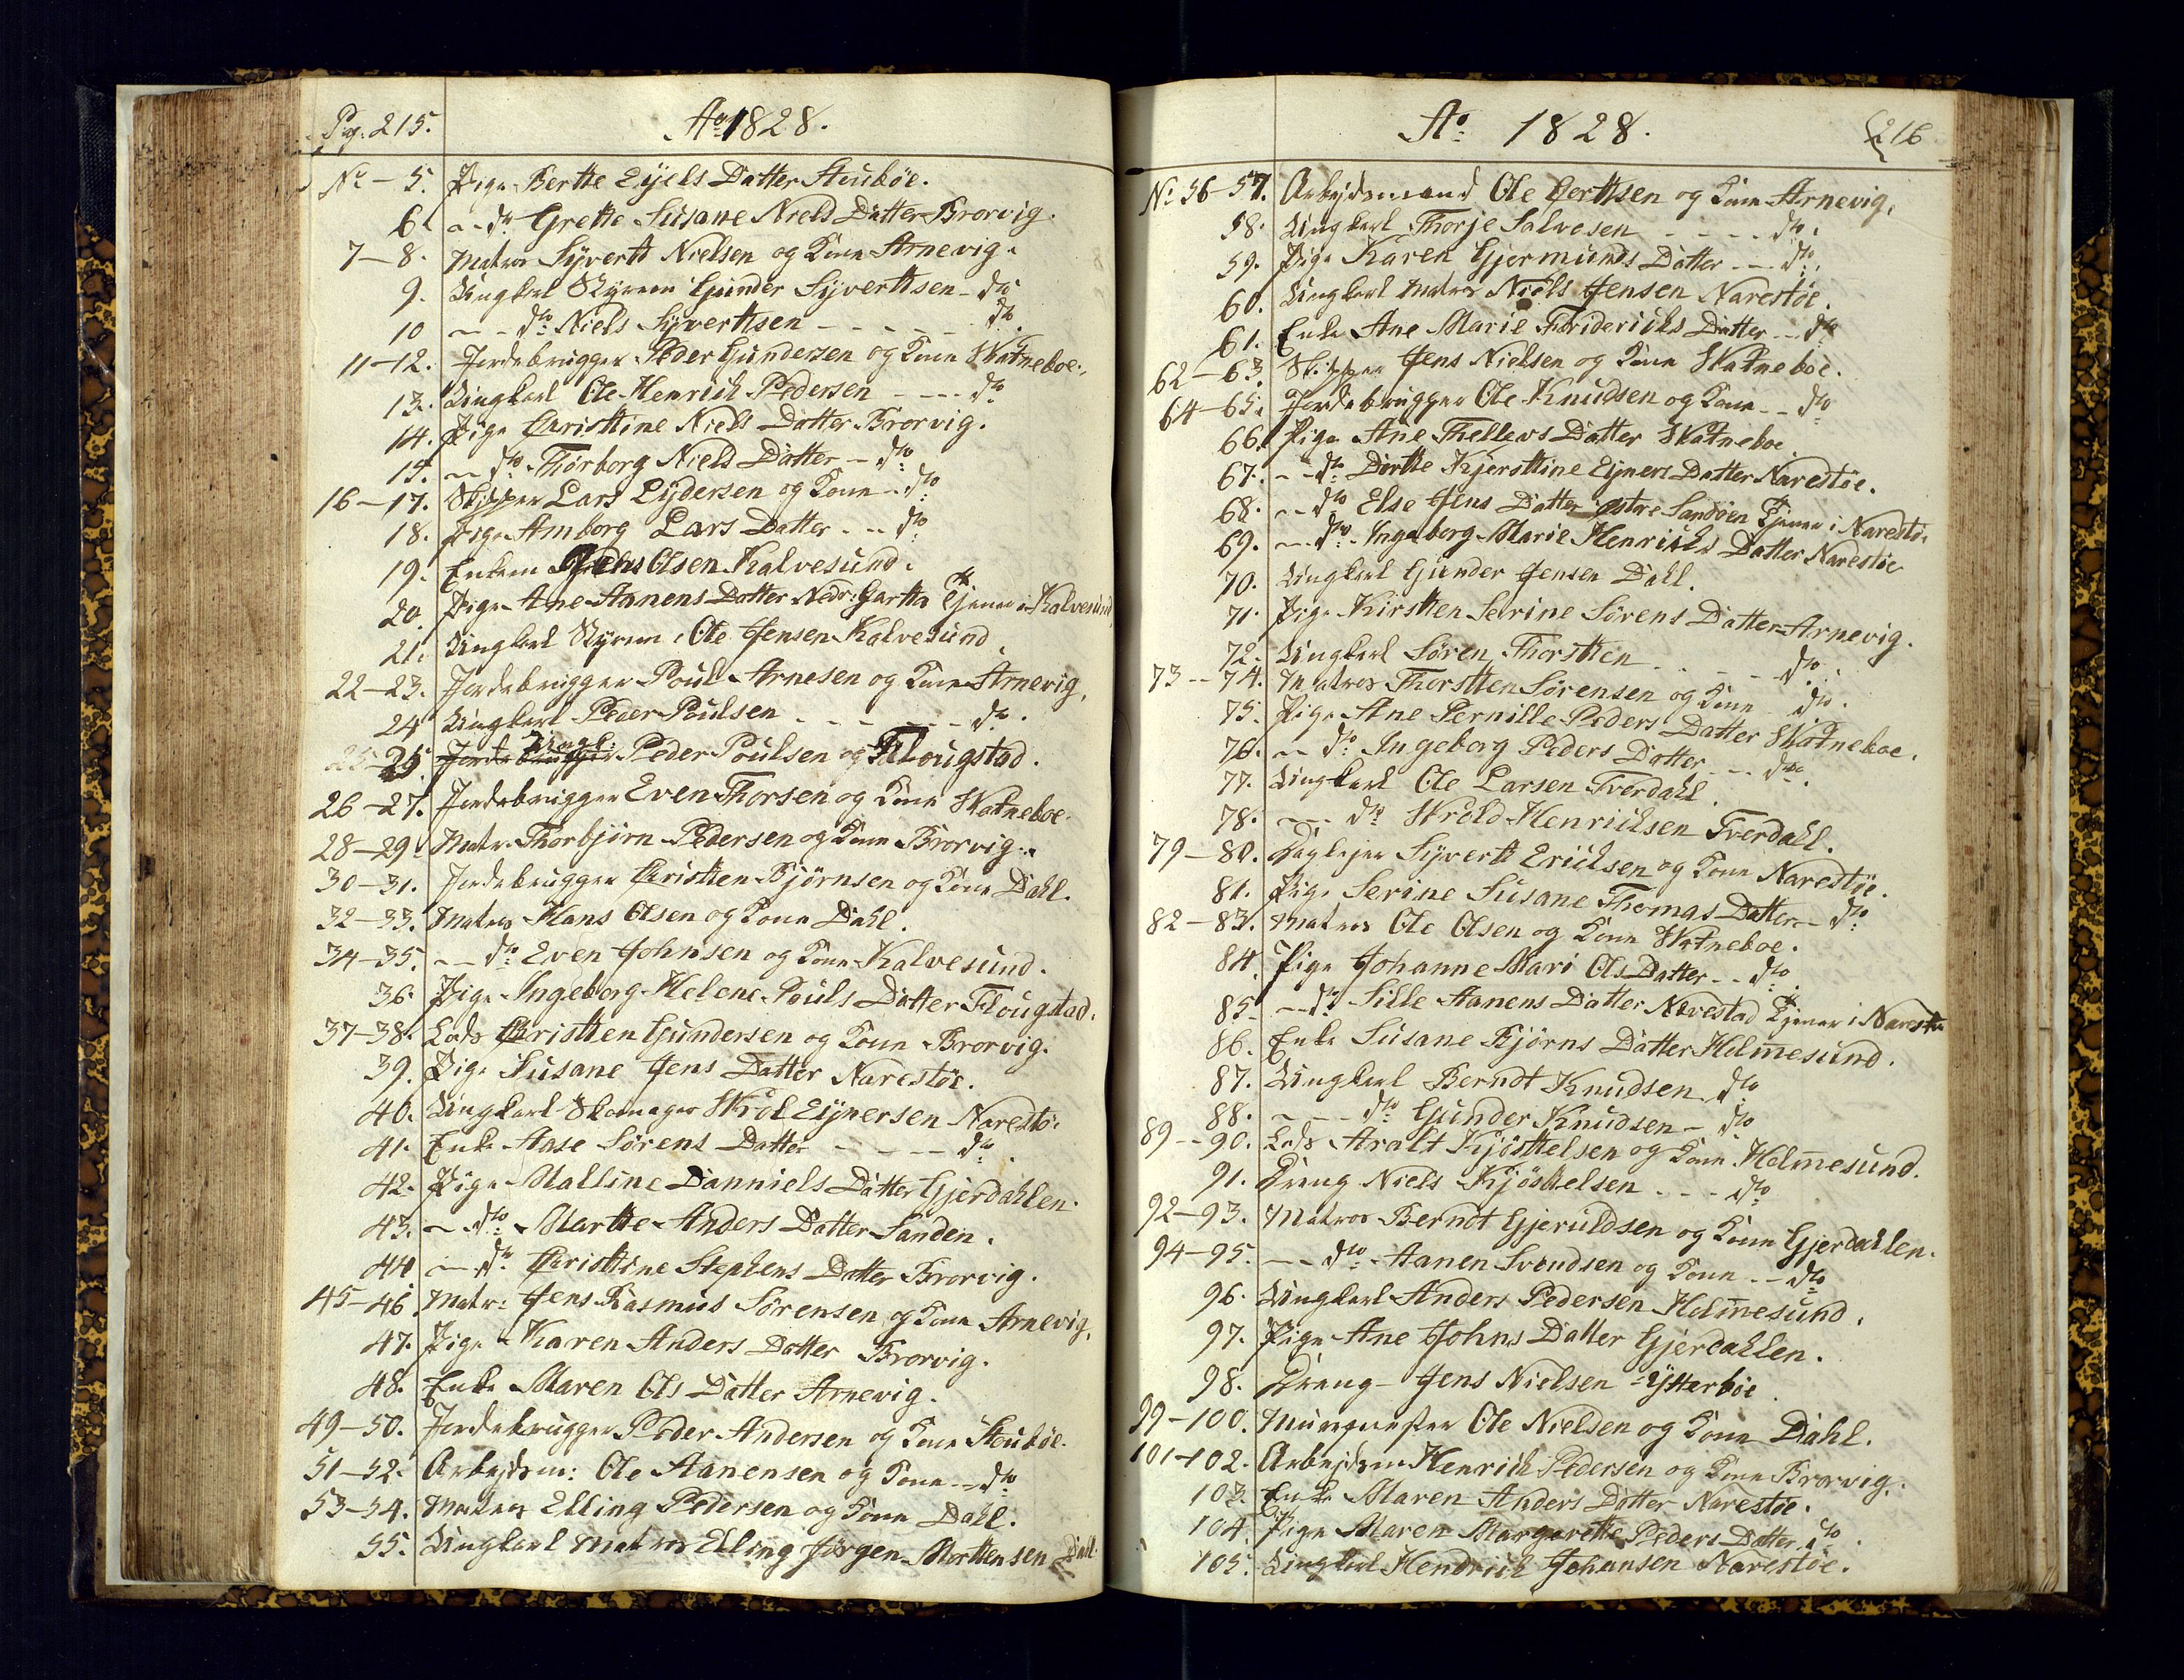 Pag. 215.
Ao 1828.
No - 5. Pige Berthe Eyels Datter Stubøe.
6. - do Grethe Susane Niels Datter Brorvig.
7-8. Matros Syvert Nielsen og Kone Arnevig.
9. Ungkarl Styrm: Gunder Syvertsen - do
10 - - do Niels Syvertsen - - - - - do.
11-12. Jordebrugger Peder Gundersen og Kone Skatneboe.
13. Ungkarl Ole Henrich Pedersen - - - do
14. Pige Christine Niels Datter Brorvig.
15. - do Thorborg Niels Datter - do
16-17. Skipper Lars Lydersen og Kone - do
18. Pige Amborg Lars Datter - - do
19. Enkem Jens Olsen Kalvesund.
20. Pige Ane Aanens Datter Nedr: Gartha Tjener i Kalvesund
21. Ungkarl Styrm: Ole Jensen Kalvesund.
22-23. Jordebrugger Poul Arnesen og Kone Arnevig.
24 Ungkarl Peder Poulsen - - - - - - do.
25 Jordebrugger Ungk: Peder Poulsen og Flougstad.
26-27. Jordebrugger Even Thorsen og Kone Skatneboe.
28-29. Matr. Thorbjørn Pedersen og Kone Brorvig.
30-31. Jordebrugger Christen Bjørnsen og Kone Dahl.
32-33. Matros Hans Olsen og Kone Dahl.
34-35. - - do Even Johnsen og Kone Kalvesund.
36. Pige Ingeborg Helene Pouls Datter Flougstad.
37-38. Lods Christen Gundersen og Kone Brorvig.
39. Pige Susane Jens Datter Narestøe.
40. Ungkarl Skomager Wrol Eynersen Narestø.
41. Enke Aase Sørens Datter - - - - do.
42. Pige Malline Danniels Datter Gjerdahlen.
43. - do - Marthe Anders Datter Sanden.
44 - do Christine Stephens Datter Brorvig.
45-46. Matr: Jens Rasmus Sørensen og Kone Arnevig.
47. Pige Karen Anders Datter Brorvig.
48. Enke Maren Ols Datter Arnevig.
49-50. Jordebrugger Peder Andersen og Kone Stubøe.
51-52. Arbejdsm: Ole Aanensen og Kone - do
53-54. Matros Elling Pedersen og Kone Dahl.
55. Ungkarl Matros Elling Jørgen Morttensen Dahl.
Ao: 1828.
216
No 56-57. Arbejdsmand Ole Gerthsen og Kone Arnevig.
58. Ungkarl Thorje Salvesen - - - - do.
59. Pige Karen Gjermunds Datter - - do.
60. Ungkarl Matros Niels Jensen Narestøe.
61. Enke Ane Marie Friderichs Datter - - do
62-63. Skipper Jens Nielsen og Kone Skatneboe.
64-65. Jordebrugger Ole Knudsen og Kone - - do
66. Pige Ane Thellevs Datter Skatneboe
67. - - do Dorthe Kjersttine Eyners Datter Narestøe.
68. - - do Else Jens Datter østre Sandøen Tjener i Narestø.
69. - - do - Ingeborg Marie Henrichs Datter Narestøe
70. Ungkarl Gunder Jensen Dahl.
71. Pige Kirsten Serine Sørens Datter Arnevig.
72. Ungkarl Søren Thorsten - - - do.
73--74. Matros Thorsten Sørensen og Kone do.
75. Pige Ane Pernille Peders Datter Skatneboe.
76. - - do Ingeborg Peders Datter - - do.
77. Ungkarl Ole Larsen Tverdahl.
78. - - - do Wrold Henrichsen Tverdahl.
79-80. Daglejer Syvert Erichsen og Kone Narestøe.
81. Pige Serine Susane Thomas Datter - do
82-83. Matros Ole Olsen og Kone Skatneboe.
84. Pige Johanne Mari Ols Datter - - do.
85. - - do Sille Aanens Datter Nævestad Tjener i Narestø
86. Enke Susane Bjørns Datter Holmesund.
87. Ungkarl Berndt Knudsen do
88. - - - do Gunder Knudsen - do
89--90. Lods Aralt Kjösttelsen og Kone Holmesund.
91. Dreng Niels Kjösttelsen - - - do
92-93. Matros Berndt Gjeruldsen og Kone Gjerdahlen.
94-95. - - do - Aanen Svendsen og Kone - - do
96. Ungkarl Anders Pedersen Holmesund.
97. Pige Ane Johns Datter Gjerdahlen.
98. Dreng - Jens Nielsen Ytterbøe
99-100. Muurmester Ole Nielsen og Kone Dahl.
101-102. Arbejdsm Henrich Pedersen og Kone Brorvig.
103. Enke Maren Anders Datter Narestøe.
104. Pige Maren Margarethe Peders Datter do
105. Ungkarl Hendrich Johansen Narestøe.